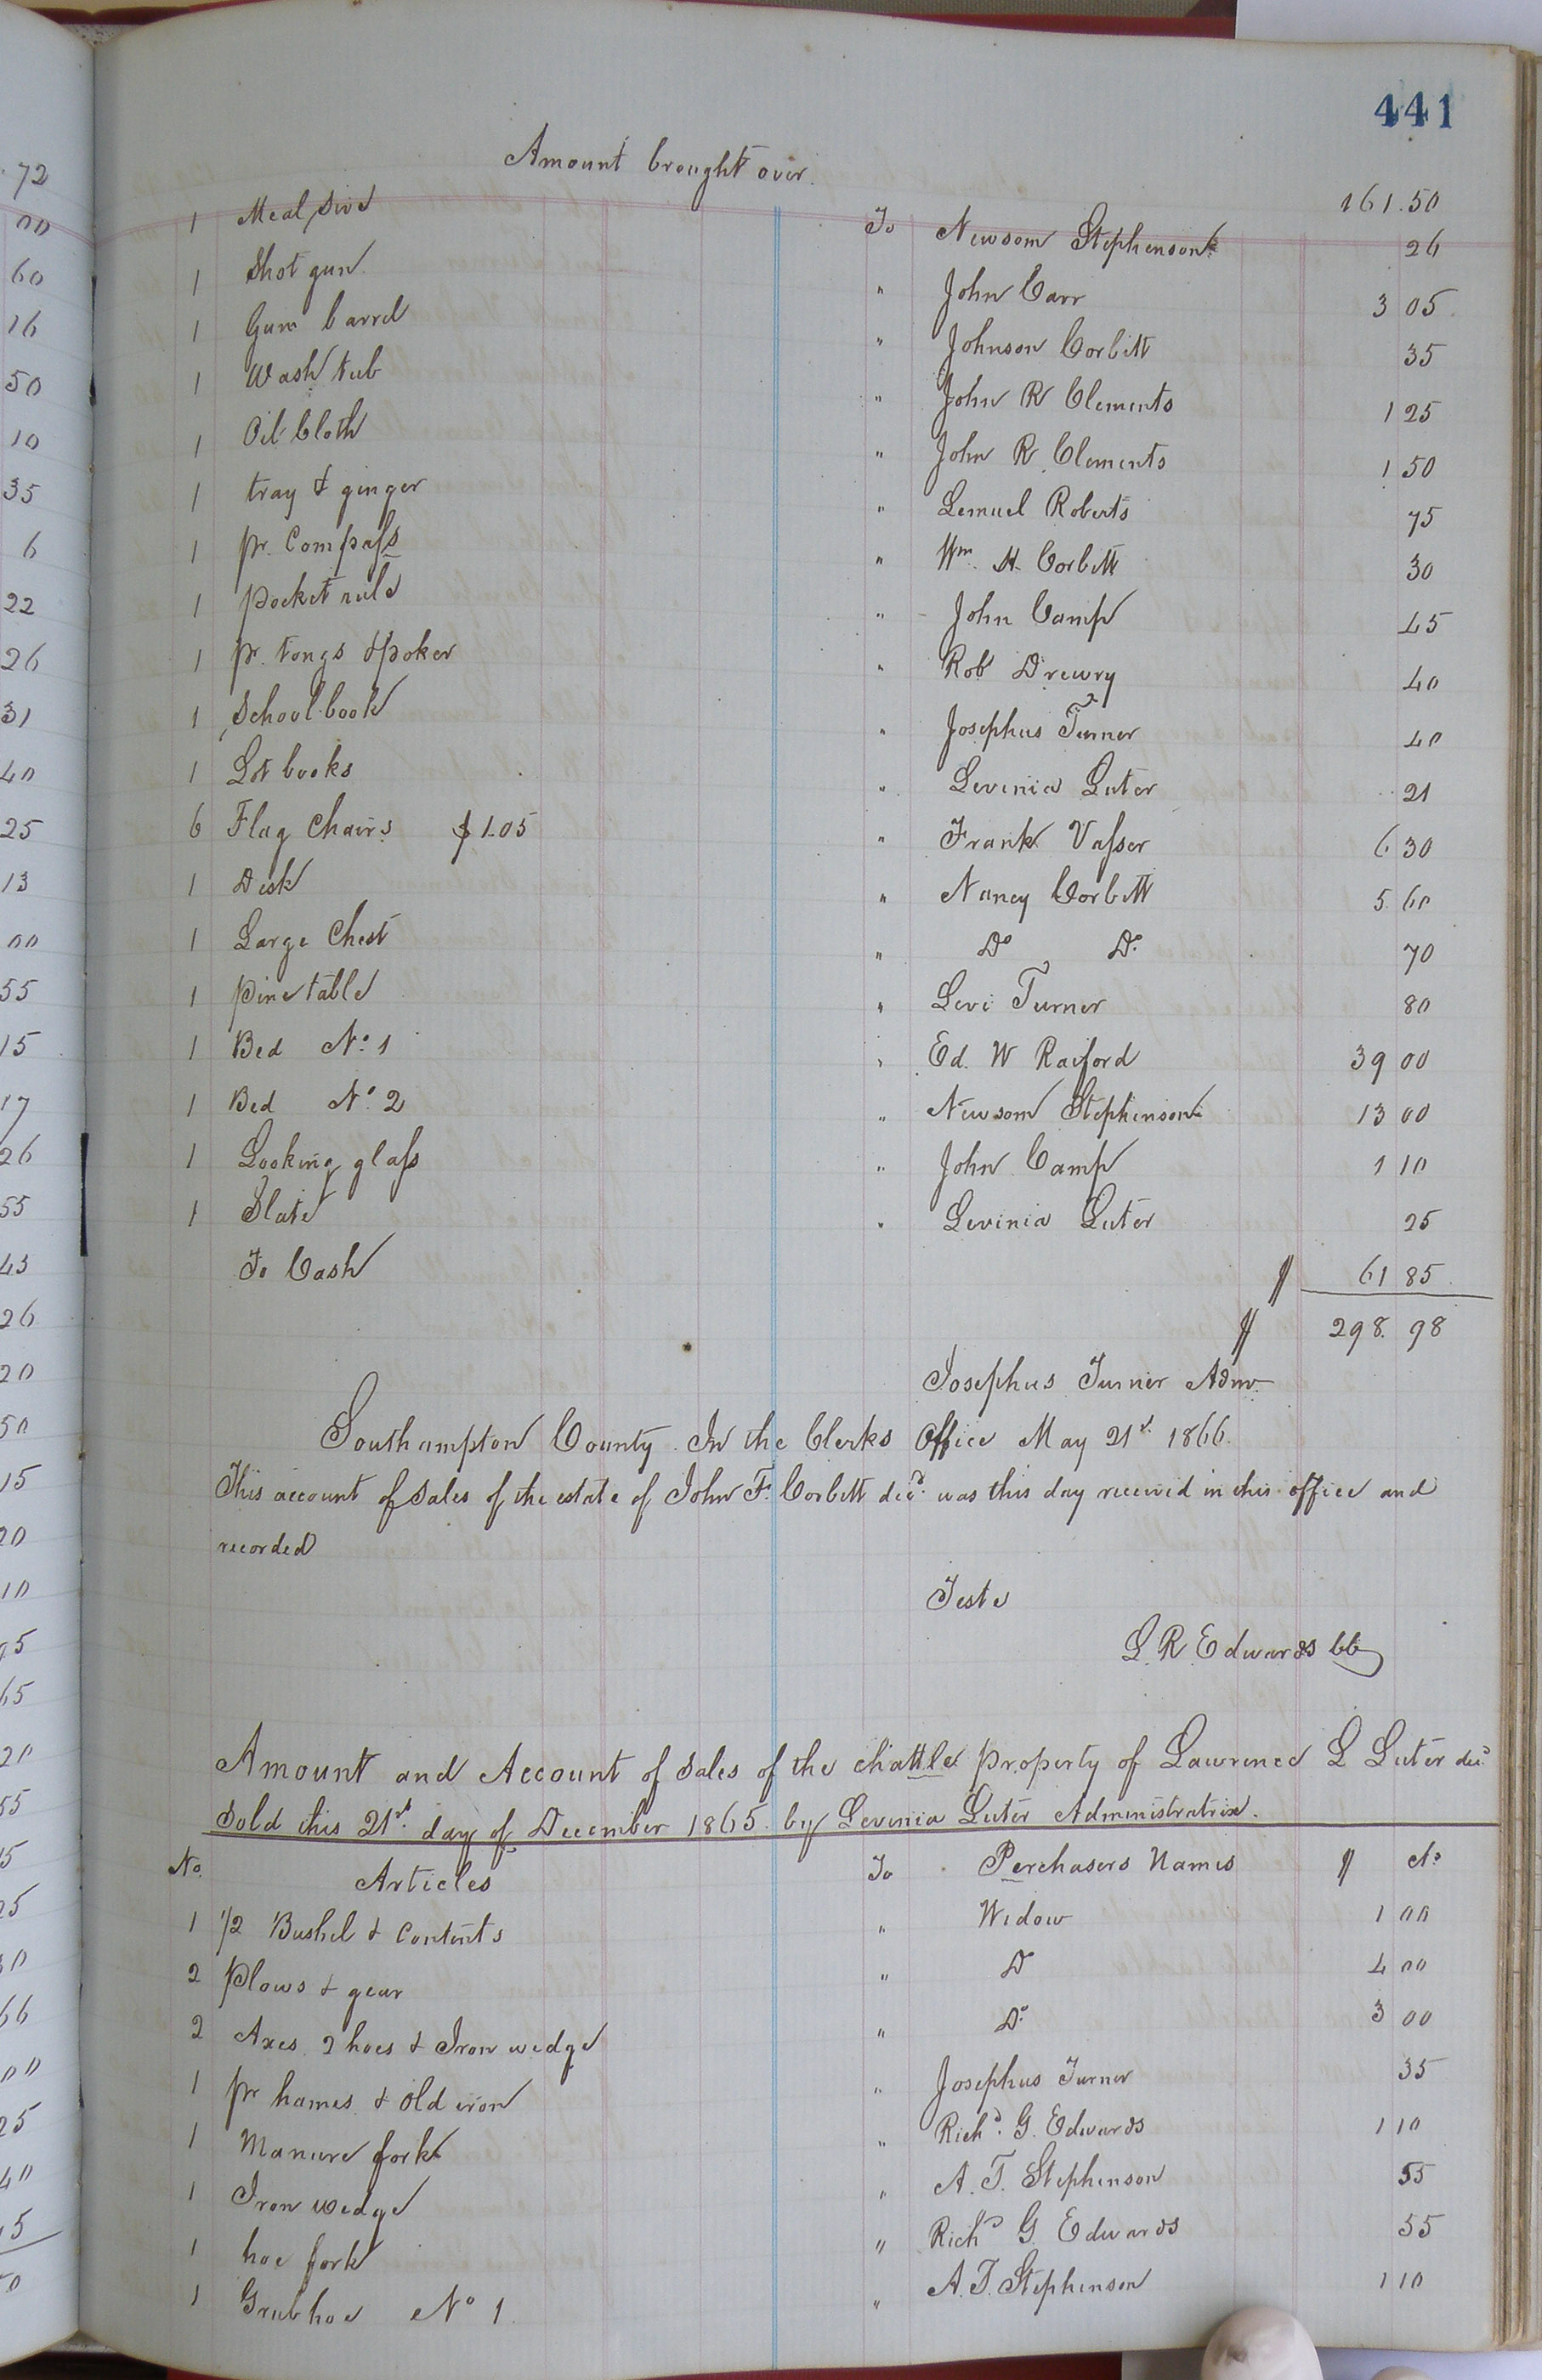 441
Amount brought over. 161.50
1 Meal Sive To Newsom Stephenson 26
1 Shot gun " John Carr 3 05
1 Gum barrel " Johnson Corbitt 35
1 Wash tub " John R Clements 1 25
1 Oil Cloth " John R. Clements 1 50
1 tray & ginger " Lemuel Roberts 75
1 pr. Compass " Wm. H. Corbitt 30
1 pocket rule " John Camp 45
1 pr. tongs & poker " Rob Drewry 40
1 School book " Josephus Turner 40
1 Lot books " Levinia Luter 21
6 Flag Chairs $1.05 " Frank Vasser 6 30
1 Desk " Nancy Corbitt 5 60
1 Large Chest " Do Do 70
1 pine table " Levi Turner 80
1 Bed No. 1 " Ed. W Raiford 39 00
1 Bed No. 2 " Newsom Stephenson 13 00
1 Looking glass " John Camp 1 10
1 Slate " Levinia Luter 25
To Cash $ 61 85
$ 298. 98
Josephus Turner Admr
Southampton County. In the Clerks Office May 21st 1866.
This account of sales of the estate of John F. Corbitt decd. was this day received in this office and
recorded
Teste
L. R. Edwards CC
Amount and Account of sales of the chattle property of Lawrence L Luter decd
Sold this 21st. day of December 1865. by Levinia Luter Administratrix.
No. Articles To Perchasers Names $ cts
1 1/2 Bushel & Contents " Widow 1 00
2 Plows & gear " Do 4 00
2 Axes 2 hoes & Iron wedge " Do 3 00
1 pr hames & old iron " Josephus Turner 35
1 Manure fork " Richd. G. Edwards 1 10
1 Iron wedge " A. T. Stephenson 55
1 hoe fork " Richd G Edwards 55
1 Grub hoe No 1 " A. T. Stephenson 1 10
72
00
60
16
50
10
35
6
22
26
31
40
25
13
00
55
15
17
26
55
43
26
20
50
15
20
10
65
20
55
66
00
25
40